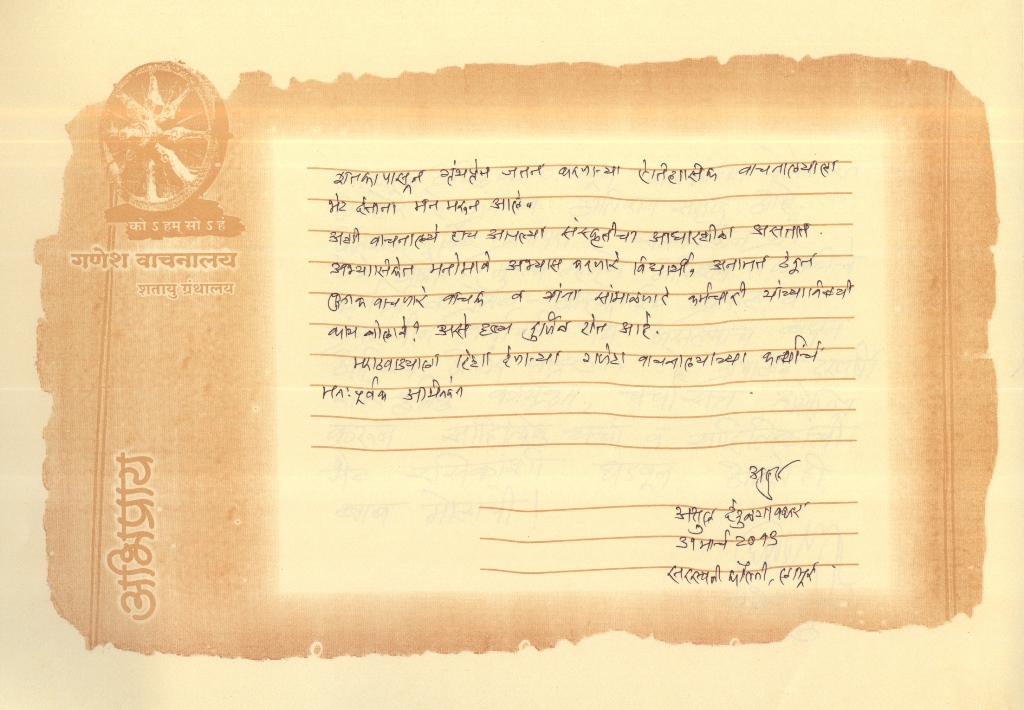 को ऽ हम् सो ऽ हं
गणेश वाचनालय
शतायु ग्रंथालय
अभिप्राय
शतकापासून ग्रंथप्रेम जतन करणाऱ्या ऐतिहासिक वाचनालयाला
भेट देताना मन भरून आले.
अशी वाचनालये हाच आपल्या संस्कृतीचा आधारशीला असतात.
अभ्यासिकेत मनोभावे अभ्यास करणारे विद्यार्थी, अनामत ठेवून
पुस्तक वाचणारे वाचक व यांना सांभाळणारे कर्मचारी यांच्याविषयी
काय बोलावे? असे दृश्य दुर्मिळ होत आहे.
मराठवाड्याला दिशा देणाऱ्या गणेश वाचनालयाच्या कार्याचे
मनःपूर्वक अभिनंदन
अतुल
अतुल देऊळगावकर
३१ मार्च २०१३
सरस्वती कॉलनी, लातूर